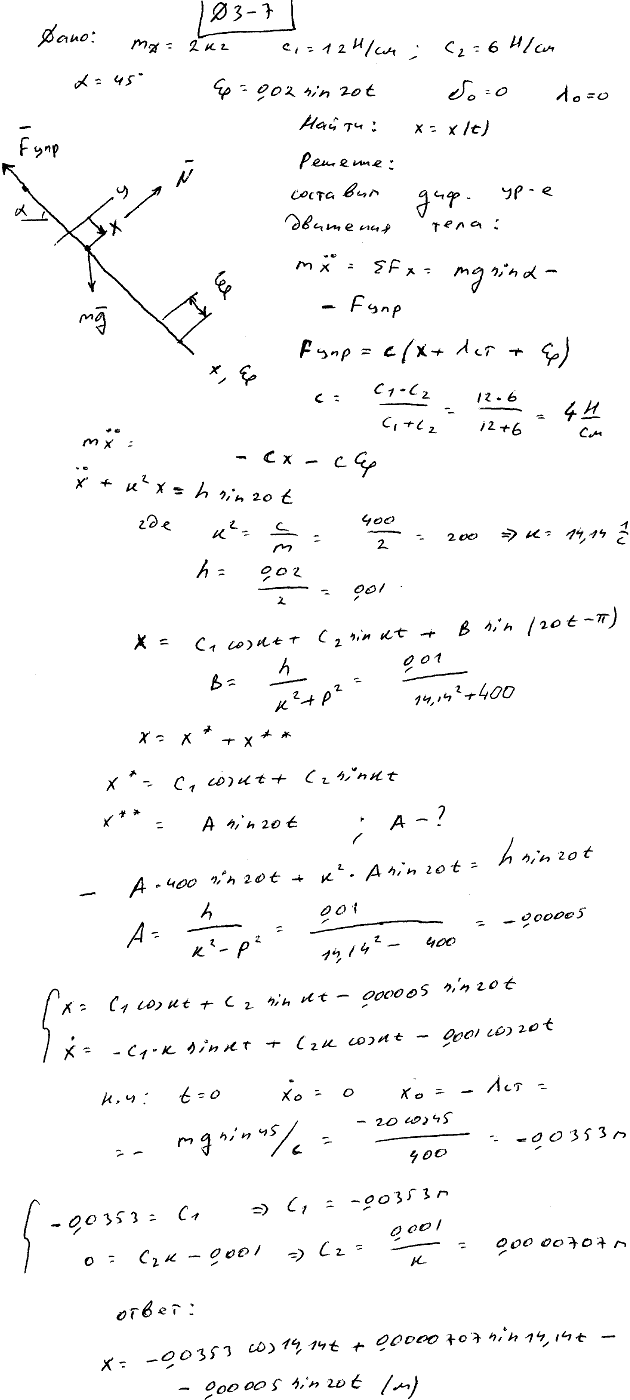 Д3-7
Дано: m_д = 2 кг  c₁ = 12 Н/см ; c₂ = 6 Н/см
α = 45°  ξ = 0,02 sin 20t  𝒥₀ = 0  λ₀ = 0
Найти: x = x(t)
F̄упр
Решение:
y  N̄
составим диф. ур-е
α  x
движения тела:
mẍ = ΣFx = mg sin α −
ξ
mḡ
− Fупр
Fупр = c(x + λст + ξ)
x, ξ
c = c₁·c₂/(c₁+c₂) = 12·6/(12+6) = 4 Н/см
mẍ = − cx − cξ
ẍ + к²x = h sin 20t
где к² = c/m = 400/2 = 200 ⇒ к = 14,14 1/с
h = 0,02/2 = 0,01
x = C₁ cos кt + C₂ sin кt + B sin (20t − π)
B = h/(к²+p²) = 0,01/(14,14²+400)
x = x* + x**
x* = C₁ cos кt + C₂ sin кt
x** = A sin 20t ; A − ?
− A·400 sin 20t + к²·A sin 20t = h sin 20t
A = h/(к²−p²) = 0,01/(14,14² − 400) = −0,00005
x = C₁ cos кt + C₂ sin кt − 0,00005 sin 20t
ẋ = −C₁·к sin кt + C₂к cos кt − 0,001 cos 20t
н.у: t = 0  ẋ₀ = 0  x₀ = − λст =
= − mg sin 45/c = −20 cos 45/400 = −0,0353 м
−0,0353 = C₁ ⇒ C₁ = −0,0353 м
0 = C₂к − 0,001 ⇒ C₂ = 0,001/к = 0,0000707 м
ответ:
x = −0,0353 cos 14,14t + 0,0000707 sin 14,14t −
− 0,00005 sin 20t (м)